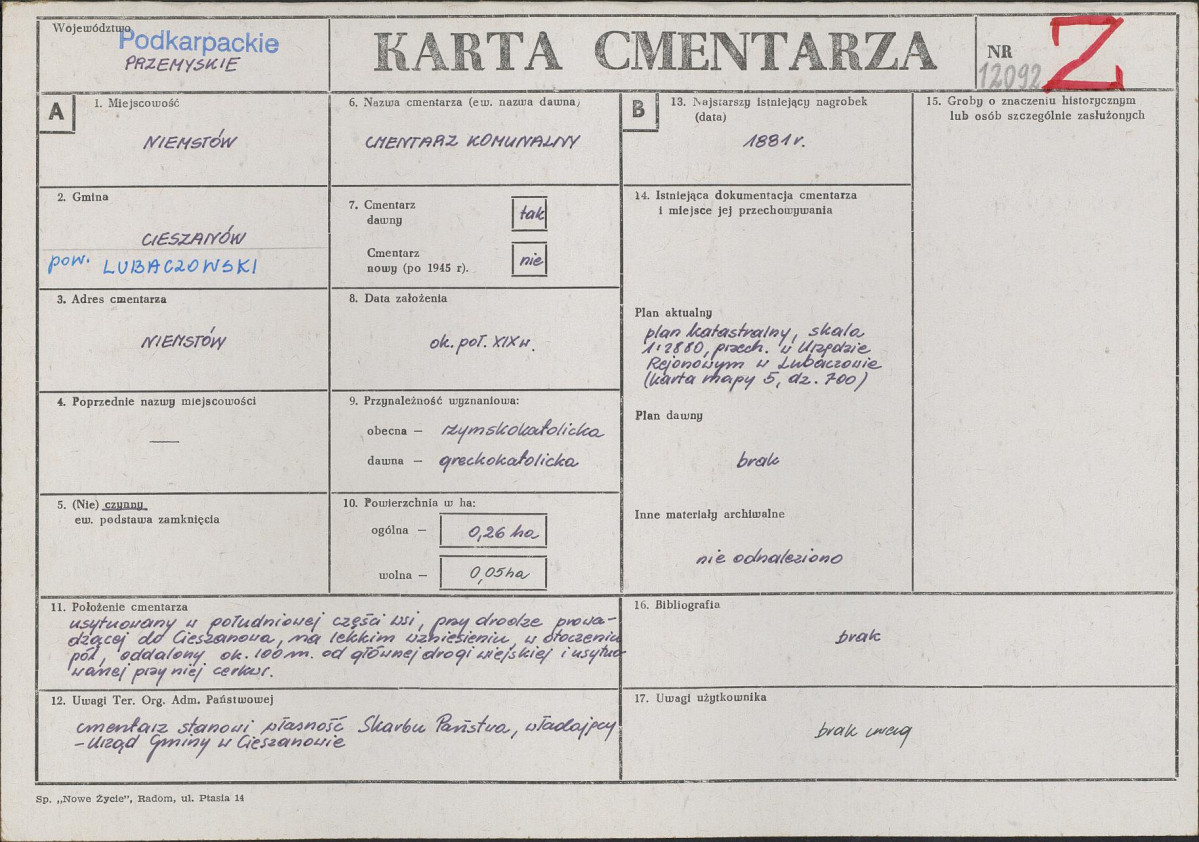 Województwo
Podkarpackie
PRZEMYSKIE
KARTA CMENTARZA
NR
12092
Z
A
1. Miejscowość
NIEMSTÓW
2. Gmina
CIESZANÓW
pow. LUBACZOWSKI
3. Adres cmentarza
NIEMSTÓW
4. Poprzednie nazwy miejscowości
—
5. (Nie) czynny
ew. podstawa zamknięcia
6. Nazwa cmentarza (ew. nazwa dawna)
CMENTARZ KOMUNALNY
7. Cmentarz
dawny
tak
Cmentarz
nowy (po 1945 r).
nie
8. Data założenia
ok. poł. XIX w.
9. Przynależność wyznaniowa:
obecna — rzymskokatolicka
dawna — greckokatolicka
10. Powierzchnia w ha:
ogólna — 0,26 ha
wolna — 0,05 ha
11. Położenie cmentarza
usytuowany w południowej części wsi, przy drodze prowa-
dzącej do Cieszanowa, na lekkim wzniesieniu, w otoczeniu
pól, oddalony ok. 100 m. od głównej drogi wiejskiej i usytuo-
wanej przy niej cerkwi.
12. Uwagi Ter. Org. Adm. Państwowej
cmentarz stanowi własność Skarbu Państwa, władający
- Urząd Gminy w Cieszanowie
B
13. Najstarszy istniejący nagrobek
(data)
1881 r.
14. Istniejąca dokumentacja cmentarza
i miejsce jej przechowywania
Plan aktualny
plan katastralny, skala
1:2880, przech. w Urzędzie
Rejonowym w Lubaczowie
(karta mapy 5, dz. 700)
Plan dawny
brak
Inne materiały archiwalne
nie odnaleziono
15. Groby o znaczeniu historycznym
lub osób szczególnie zasłużonych
16. Bibliografia
brak
17. Uwagi użytkownika
brak uwag
Sp. „Nowe Życie", Radom, ul. Ptasia 14